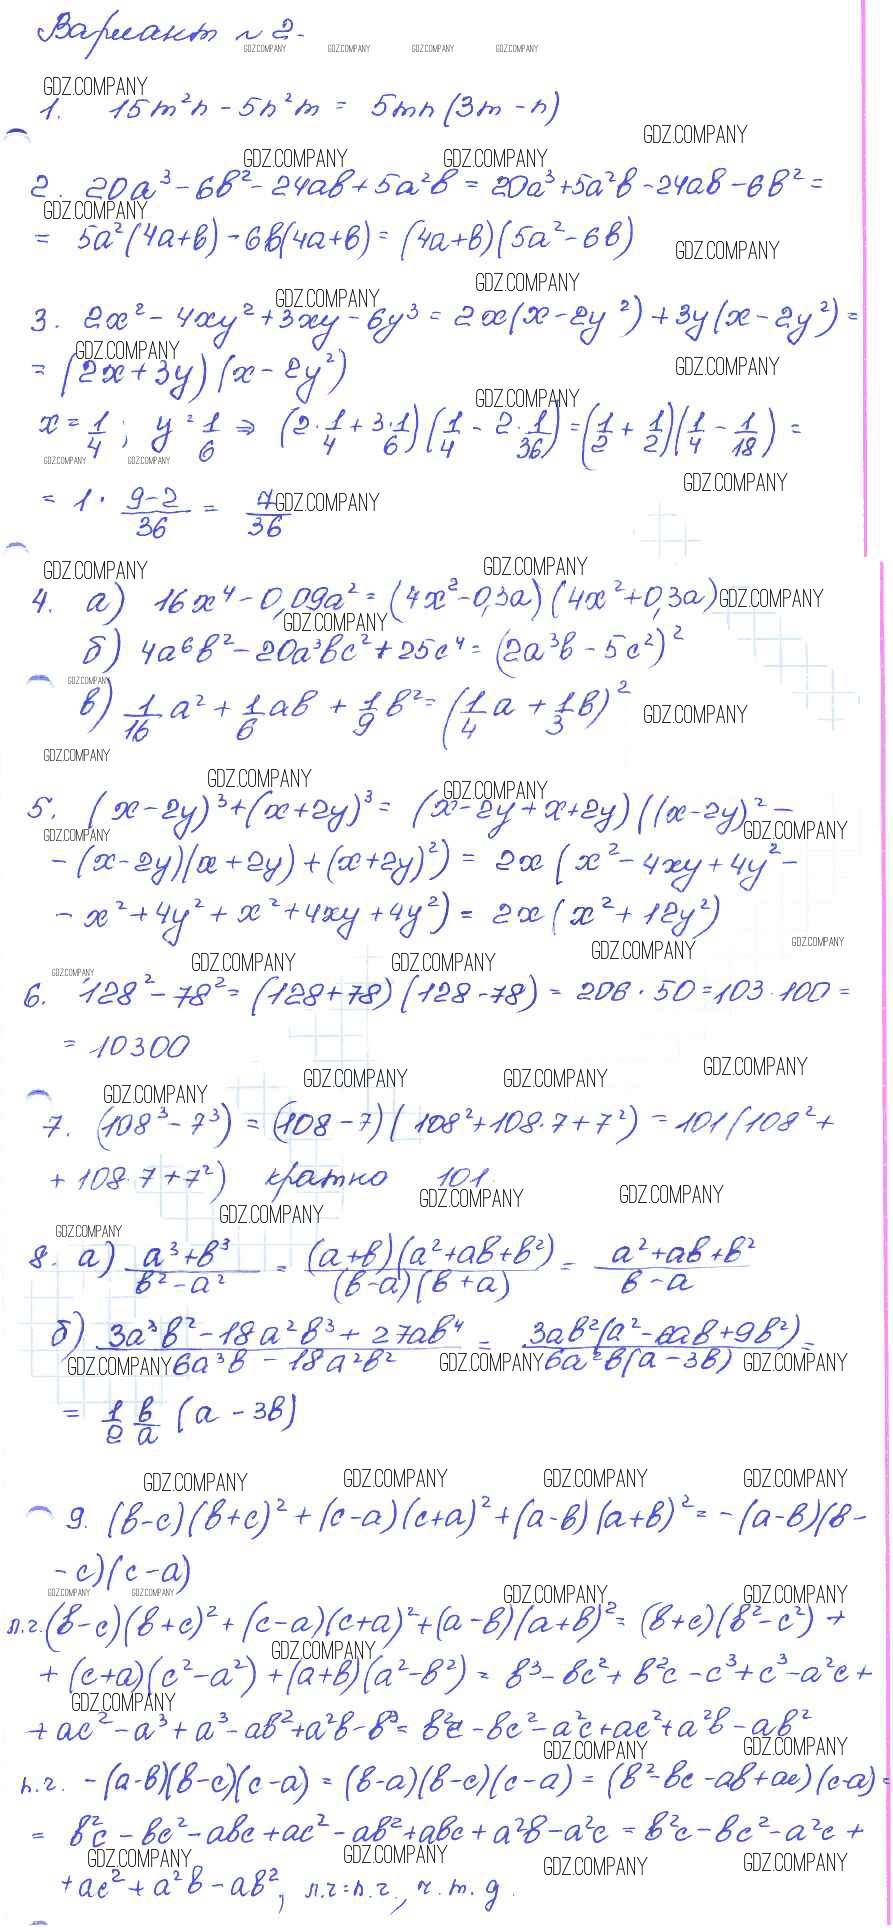 Вариант №2.
GDZ.COMPANY GDZ.COMPANY GDZ.COMPANY GDZ.COMPANY
GDZ.COMPANY
1. 15m²n - 5n²m = 5mn(3m - n)
GDZ.COMPANY
GDZ.COMPANY GDZ.COMPANY
2. 20a³ - 6b² - 24ab + 5a²b = 20a³ + 5a²b - 24ab - 6b² =
GDZ.COMPANY
= 5a²(4a+b) - 6b(4a+b) = (4a+b)(5a² - 6b)
GDZ.COMPANY
GDZ.COMPANY GDZ.COMPANY
3. 2x² - 4xy² + 3xy - 6y³ = 2x(x - 2y²) + 3y(x - 2y²) =
GDZ.COMPANY
= (2x + 3y)(x - 2y²)
GDZ.COMPANY
GDZ.COMPANY
x = 1/4; y = 1/6 ⇒ (2·1/4 + 3·1/6)(1/4 - 2·1/36) = (1/2 + 1/2)(1/4 - 1/18) =
GDZ.COMPANY GDZ.COMPANY
GDZ.COMPANY
= 1 · (9-2)/36 = 7/36 GDZ.COMPANY
GDZ.COMPANY GDZ.COMPANY
4. а) 16x⁴ - 0,09a² = (4x² - 0,3a)(4x² + 0,3a) GDZ.COMPANY
GDZ.COMPANY
б) 4a⁶b² - 20a³bc² + 25c⁴ = (2a³b - 5c²)²
GDZ.COMPANY
в) 1/16 a² + 1/6 ab + 1/9 b² = (1/4 a + 1/3 b)²
GDZ.COMPANY
GDZ.COMPANY
GDZ.COMPANY GDZ.COMPANY
5. (x - 2y)³ + (x + 2y)³ = (x - 2y + x + 2y)((x - 2y)² -
GDZ.COMPANY GDZ.COMPANY
- (x - 2y)(x + 2y) + (x + 2y)²) = 2x(x² - 4xy + 4y² -
- x² + 4y² + x² + 4xy + 4y²) = 2x(x² + 12y²)
GDZ.COMPANY GDZ.COMPANY
GDZ.COMPANY GDZ.COMPANY GDZ.COMPANY
6. 128² - 78² = (128 + 78)(128 - 78) = 206 · 50 = 103 · 100 =
= 10300
GDZ.COMPANY GDZ.COMPANY GDZ.COMPANY GDZ.COMPANY
7. (108³ - 7³) = (108 - 7)(108² + 108·7 + 7²) = 101(108² +
+ 108·7 + 7²) кратно 101.
GDZ.COMPANY GDZ.COMPANY GDZ.COMPANY
GDZ.COMPANY
8. а) (a³ + b³)/(b² - a²) = (a+b)(a² + ab + b²)/(b-a)(b+a) = (a² + ab + b²)/(b - a)
б) (3a³b² - 18a²b³ + 27ab⁴)/(6a³b - 18a²b²) = 3ab²(a² - 6ab + 9b²)/6a²b(a - 3b) =
GDZ.COMPANY GDZ.COMPANY GDZ.COMPANY
= 1/2 b/a (a - 3b)
GDZ.COMPANY GDZ.COMPANY GDZ.COMPANY GDZ.COMPANY
9. (b-c)(b+c)² + (c-a)(c+a)² + (a-b)(a+b)² = -(a-b)(b-
- c)(c - a)
GDZ.COMPANY GDZ.COMPANY GDZ.COMPANY GDZ.COMPANY
л.ч. (b-c)(b+c)² + (c-a)(c+a)² + (a-b)(a+b)² = (b+c)(b² - c²) +
GDZ.COMPANY
+ (c+a)(c² - a²) + (a+b)(a² - b²) = b³ - bc² + b²c - c³ + c³ - a²c +
GDZ.COMPANY
+ ac² - a³ + a³ - ab² + a²b - b³ = b²c - bc² - a²c + ac² + a²b - ab²
GDZ.COMPANY GDZ.COMPANY
п.ч. -(a-b)(b-c)(c-a) = (b-a)(b-c)(c-a) = (b² - bc - ab + ac)(c-a) =
= b²c - bc² - abc + ac² - ab² + abc + a²b - a²c = b²c - bc² - a²c +
GDZ.COMPANY GDZ.COMPANY GDZ.COMPANY GDZ.COMPANY
+ ac² + a²b - ab², л.ч = п.ч., ч.т.д.